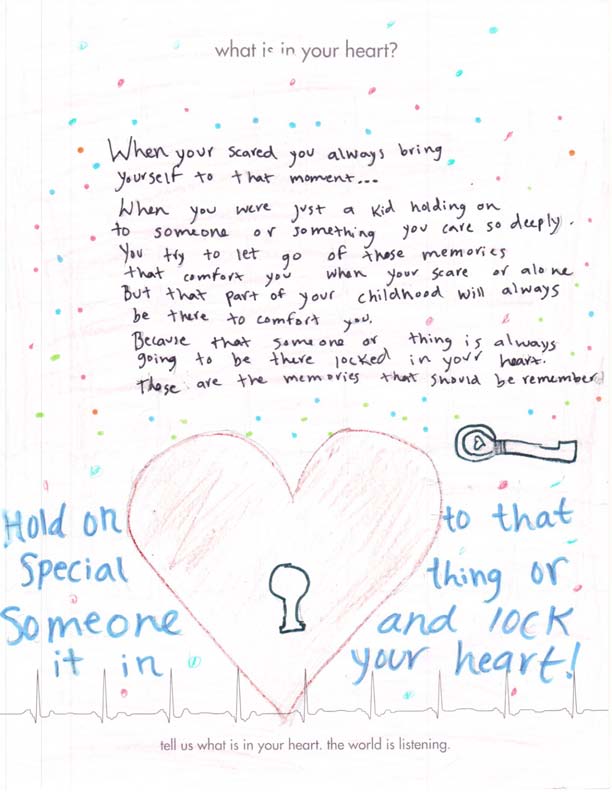 what is in your heart?
When your scared you always bring
yourself to that moment...
When you were just a kid holding on
to someone or something you care so deeply.
You try to let go of those memories
that comfort you when your scare or alone
But that part of your childhood will always
be there to comfort you.
Because that someone or thing is always
going to be there locked in your heart.
Those are the memories that should be rememberd
Hold on to that
Special thing or
Someone and lock
it in your heart!
tell us what is in your heart. the world is listening.